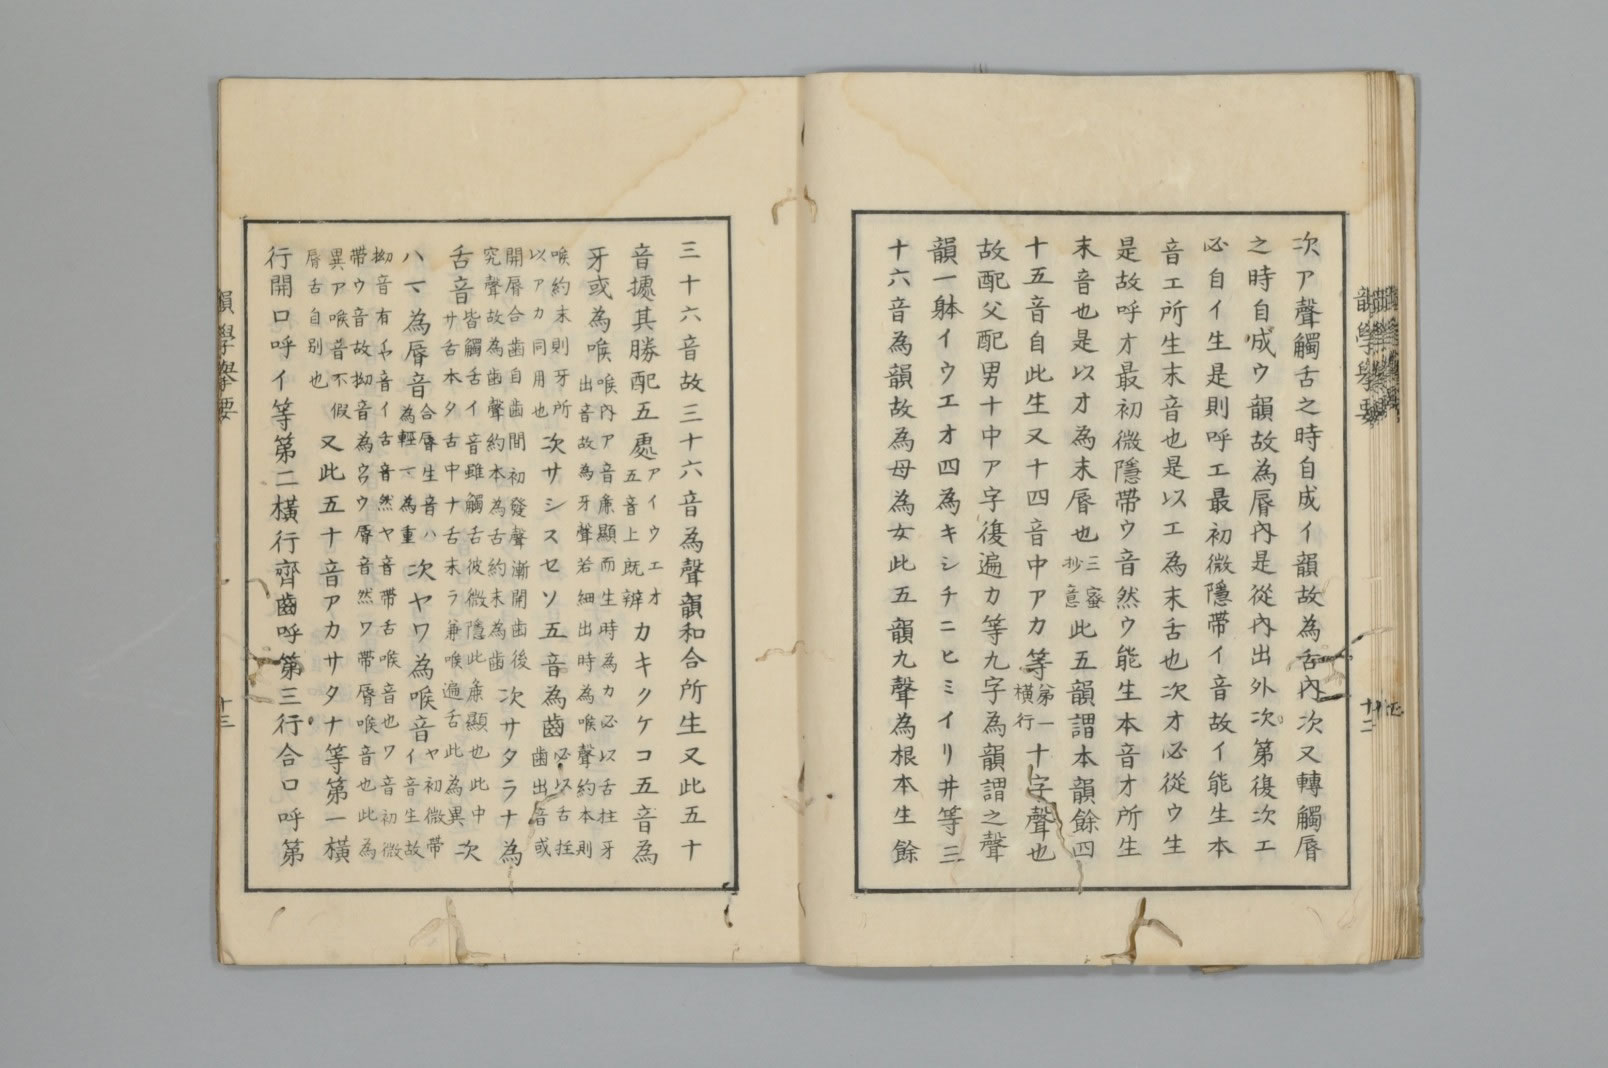 次ア聲觸舌之時自成イ韻故為舌內次又轉觸脣
之時自成ウ韻故為脣內是從內出外次第復次エ
必自イ生是則呼エ最初微隱帶イ音故イ能生本
音エ所生末音也是以エ為末舌也次オ必從ウ生
是故呼オ最初微隱帶ウ音然ウ能生本音オ所生
末音也是以オ為末脣也三蜜抄意此五韻謂本韻餘四
十五音自此生又十四音中アカ等第一橫行十字聲也
故配父配男十中ア字復遍カ等九字為韻謂之聲
韻一躰イウエオ四為キシチニヒミイリ井等三
十六音為韻故為母為女此五韻九聲為根本生餘
三十六音故三十六音為聲韻和合所生又此五十
音據其勝配五處アイウエオ五音上既辨カキクケコ五音為
牙或為喉喉內ア音麁顯而生時為カ必以舌柱牙出音故為牙聲若細出時為喉聲約本則
喉約末則牙所以アカ同用也次サシスセソ五音為齒必以舌拄齒出音或
開脣合齒自齒間初發聲漸開齒後究聲故為齒聲約本為舌約末為齒次サタラナ為
舌音サ舌本タ舌中ナ舌末ラ兼喉遍舌此為異皆觸舌イ音雖觸舌彼微隱此麁顯也此中次
ハマ為脣音合脣生音ハ為輕マ為重次ヤワ為喉音ヤ初微帶イ音生故
拗音有ヤ音イ舌音然ヤ音帶舌喉音也ワ音初微帶ウ音故拗音為ワウ脣音然ワ帶脣喉音也此為
異ア喉音不假脣舌自别也又此五十音アカサタナ等第一橫
行開口呼イ等第二橫行齊齒呼第三行合口呼第
韻學擧要
十二
韻學擧要
十三